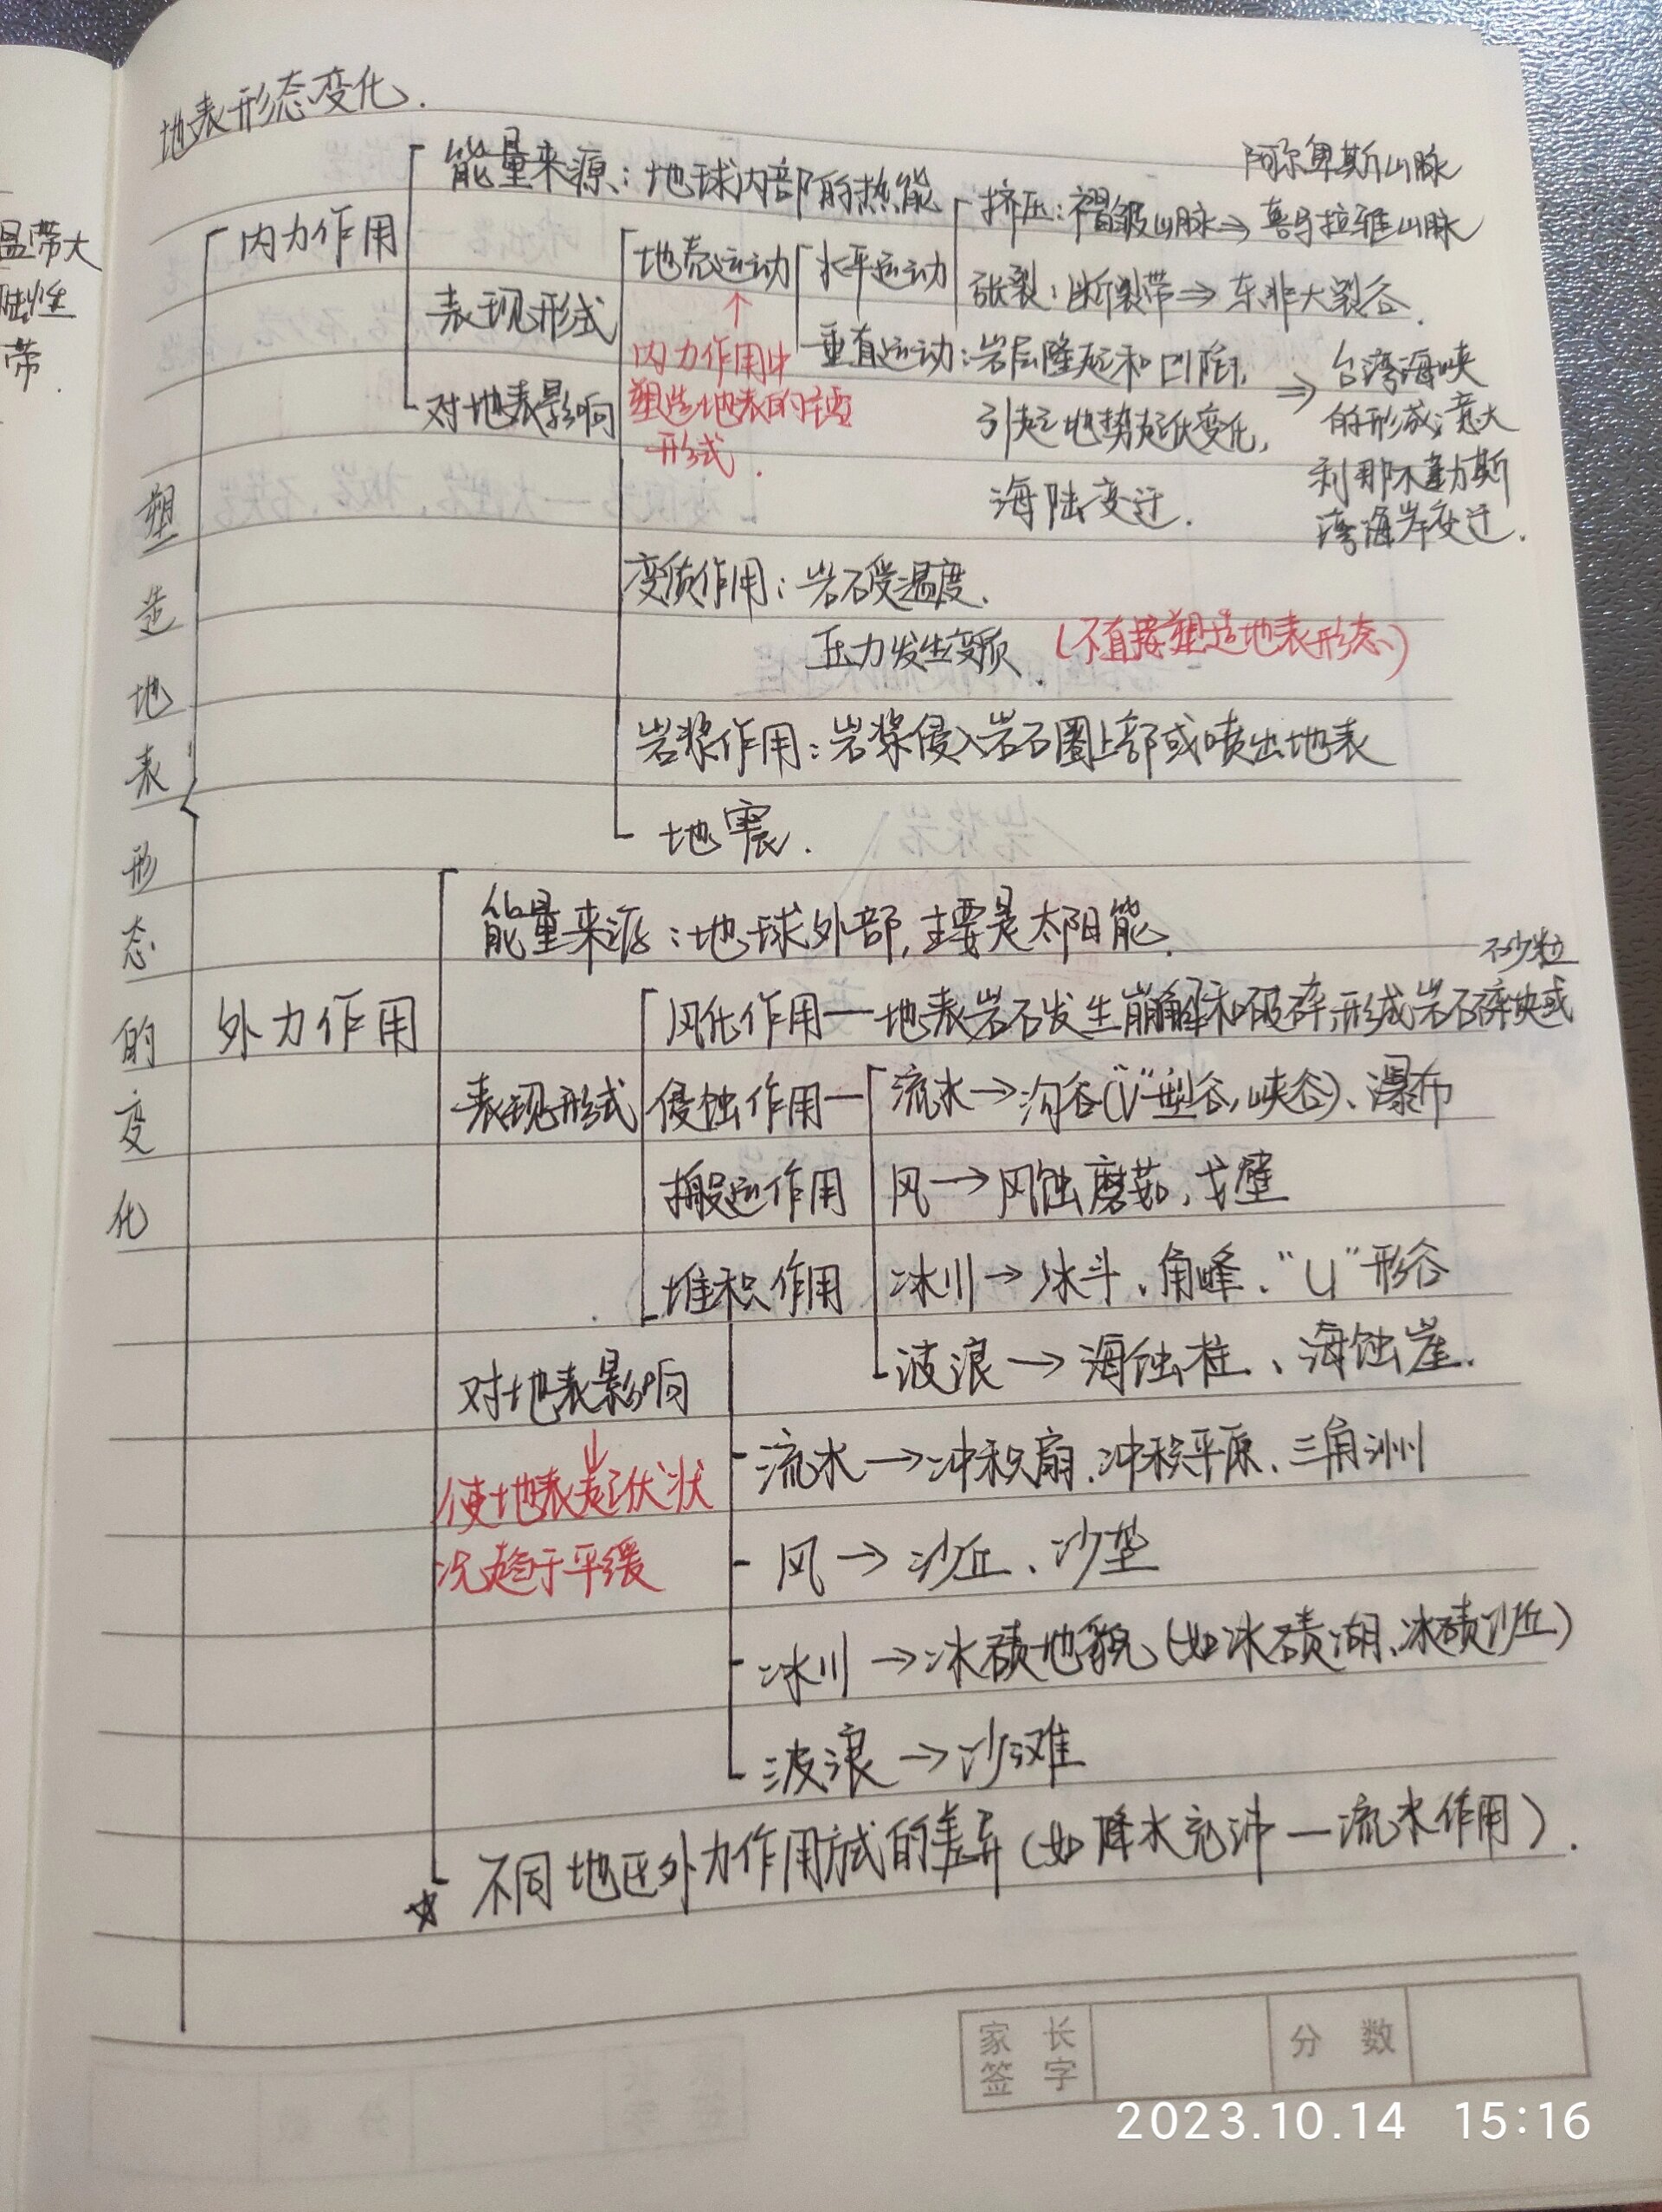 地表形态变化.
温带大
陆性
带.
塑造地表形态的变化
内力作用
能量来源:地球内部的热能
表现形式
对地表影响
地壳运动
↑
内力作用中
塑造地表的主要
形式.
水平运动
挤压:褶皱山脉⇒喜马拉雅山脉
阿尔卑斯山脉
张裂:断裂带⇒东非大裂谷.
垂直运动:岩层隆起和凹陷,
引起地势起伏变化,
海陆变迁.
⇒台湾海峡
的形成;意大
利那不勒斯
湾海岸变迁.
变质作用:岩石受温度、
压力发生变质.
(不直接塑造地表形态)
岩浆作用:岩浆侵入岩石圈上部或喷出地表
地震.
外力作用
能量来源:地球外部,主要是太阳能.
表现形式
风化作用—地表岩石发生崩解和破碎,形成岩石碎块或
砂粒
侵蚀作用—流水→沟谷("V"型谷,峡谷)、瀑布
搬运作用
风→风蚀蘑菇,戈壁
堆积作用
冰川→冰斗、角峰、"U"形谷
波浪→海蚀柱、海蚀崖.
对地表影响
↓
使地表起伏状
况趋于平缓
流水→冲积扇、冲积平原、三角洲
风→沙丘、沙垄
冰川→冰碛地貌(如冰碛湖、冰碛丘)
波浪→沙滩
☆不同地区外力作用方式的差异(如降水充沛—流水作用).
家长
签字
分数
2023.10.14 15:16